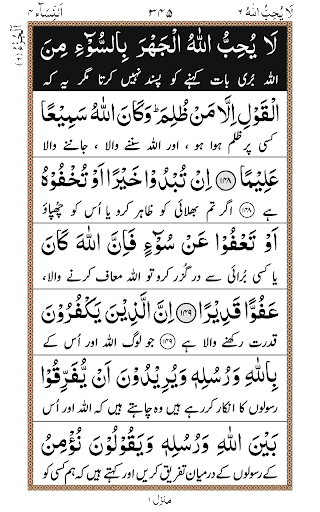 لَا يُحِبُّ اللّٰهُ ٦ ٣٤٥ اَلنِّسَآء ٤
لَا يُحِبُّ اللّٰهُ الْجَهْرَ بِالسُّوْٓءِ مِنَ
اللہ بُری بات کہنے کو پسند نہیں کرتا مگر یہ کہ
الْقَوْلِ اِلَّا مَنْ ظُلِمَ ؕ وَكَانَ اللّٰهُ سَمِيْعًا
کسی پر ظلم ہوا ہو ، اور اللہ سننے والا ، جاننے والا
عَلِيْمًا ﴿۱۴۸﴾ اِنْ تُبْدُوْا خَيْرًا اَوْ تُخْفُوْهُ
ہے ﴿۱۴۸﴾ اگر تم بھلائی کو ظاہر کرو یا اُس کو چھپاؤ
اَوْ تَعْفُوْا عَنْ سُوْٓءٍ فَاِنَّ اللّٰهَ كَانَ
یا کسی بُرائی سے درگزر کرو تو اللہ معاف کرنے والا،
عَفُوًّا قَدِيْرًا ﴿۱۴۹﴾ اِنَّ الَّذِيْنَ يَكْفُرُوْنَ
قدرت رکھنے والا ہے ﴿۱۴۹﴾ جو لوگ اللہ اور اُس کے
بِاللّٰهِ وَرُسُلِهٖ وَيُرِيْدُوْنَ اَنْ يُّفَرِّقُوْا
رسولوں کا انکار کر رہے ہیں وہ چاہتے ہیں کہ اللہ اور اُس
بَيْنَ اللّٰهِ وَرُسُلِهٖ وَيَقُوْلُوْنَ نُؤْمِنُ
کے رسولوں کے درمیان تفریق کریں اور کہتے ہیں کہ ہم کسی کو
منزل ۱